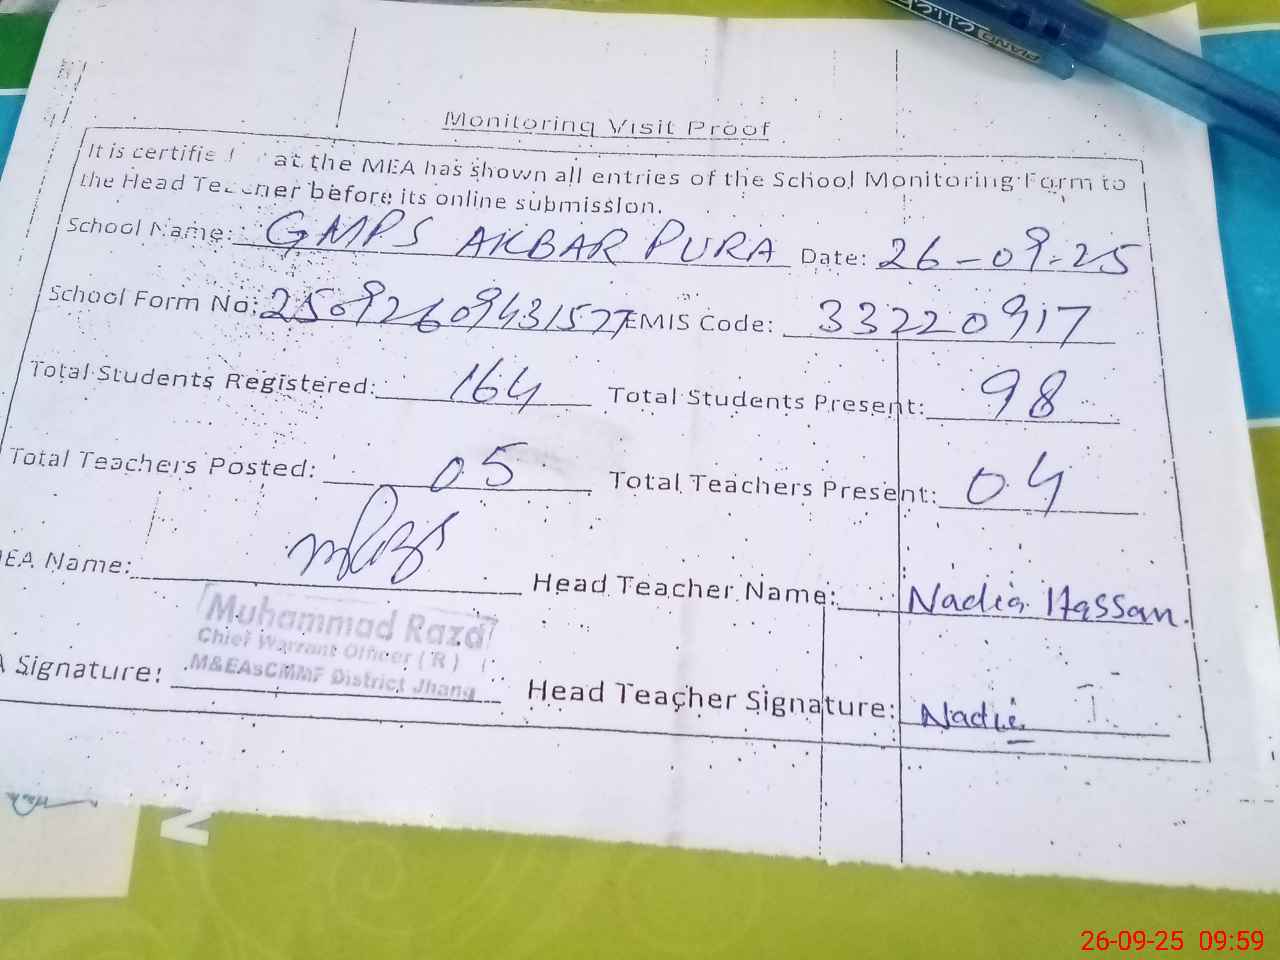 PIANO
Monitoring Visit Proof
It is certified at the MEA has shown all entries of the School Monitoring Form to
the Head Teacher before its online submission.
School Name: GMPS AKBAR PURA Date: 26-09-25
School Form No: 25092609431577 EMIS Code: 33220917
Total Students Registered: 164 Total Students Present: 98
Total Teachers Posted: 05 Total Teachers Present: 04
EA Name: Head Teacher Name: Nadia Hassan.
Muhammad Raza
Chief Warrant Officer (R)
M&EAsCMMF District Jhang
A Signature: Head Teacher Signature: Nadia
26-09-25 09:59